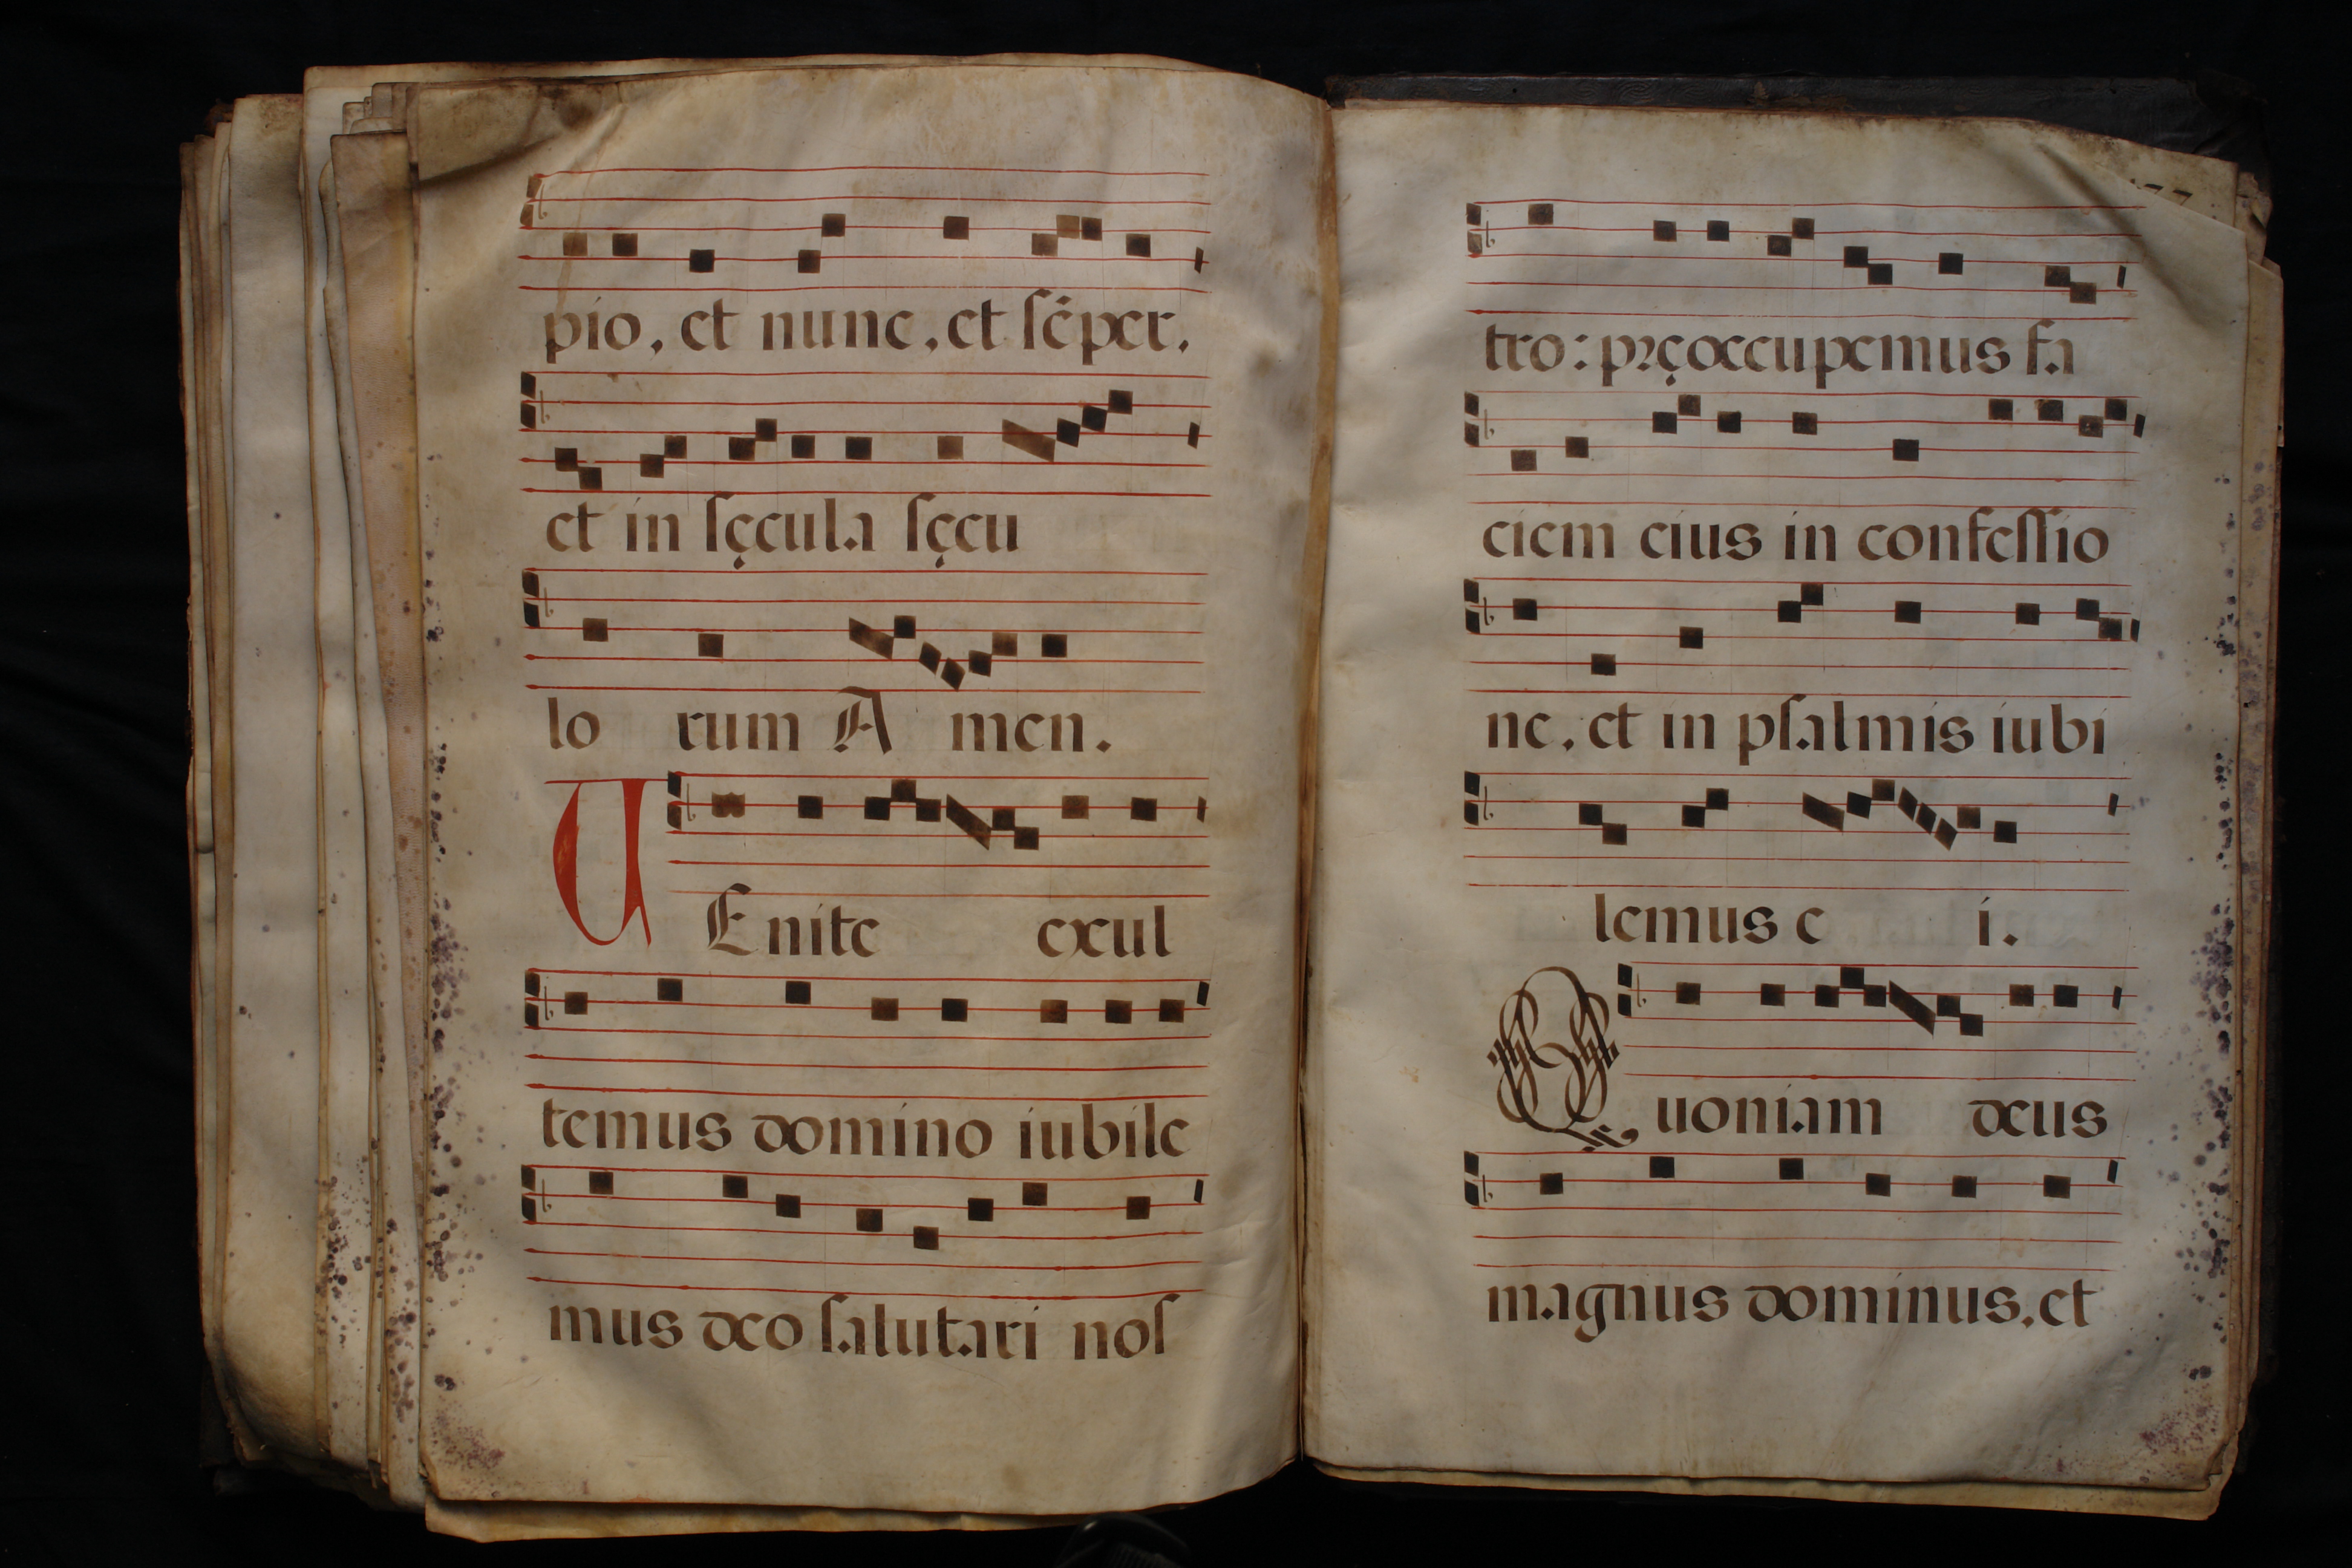 pio, et nunc, et sẽper.
et in sęcula sęcu
lo rum A men.
VEnite exul
temus domino iubile
mus deo salutari nos
tro: pręoccupemus fa
ciem eius in confessio
ne, et in psalmis iubi
lemus e i.
Quoniam deus
magnus dominus, et